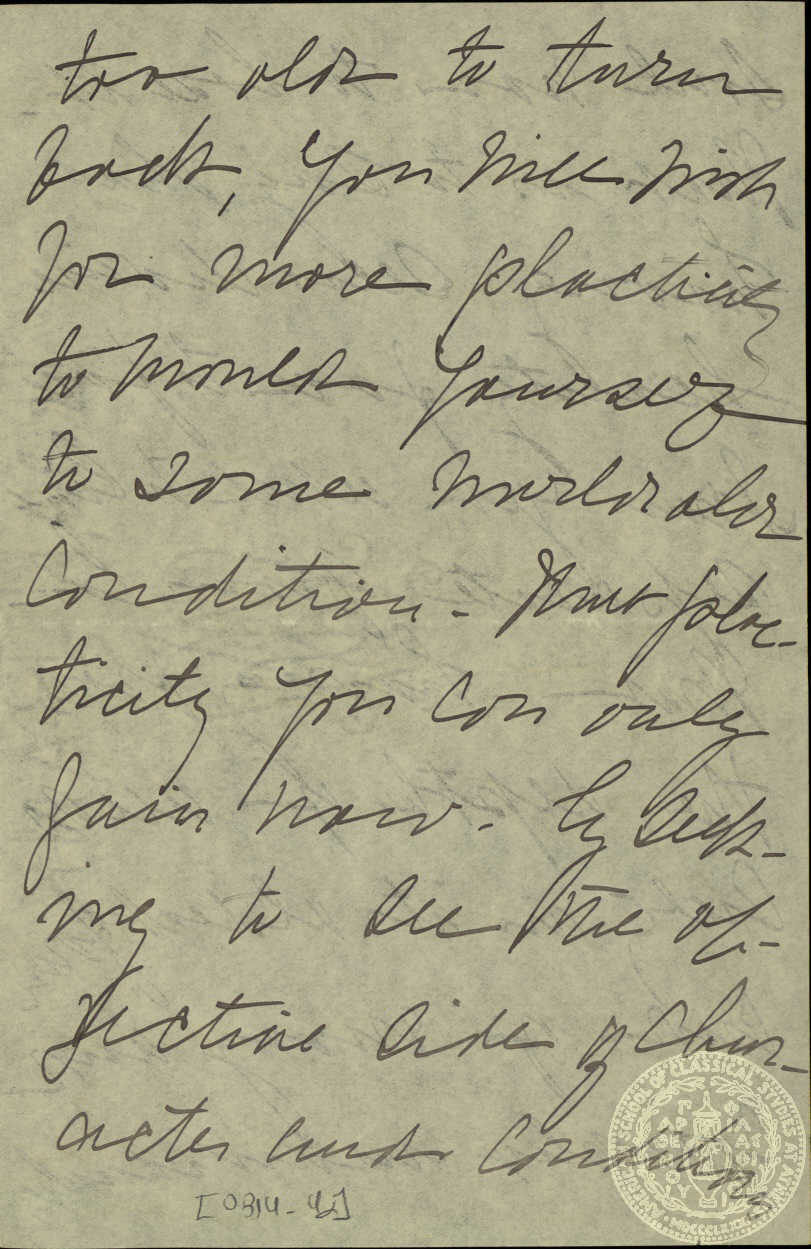 too old to turn
back, you will wish
for more placticity
to mould yourself
to some world old
condition - that plac-
ticity you can only
gain now - by seek-
ing to see the ob-
jective side of char-
acter and conditions
[0314-42]
SCHOOL OF CLASSICAL STUDIES AT ATHENS
MDCCCLXXXI